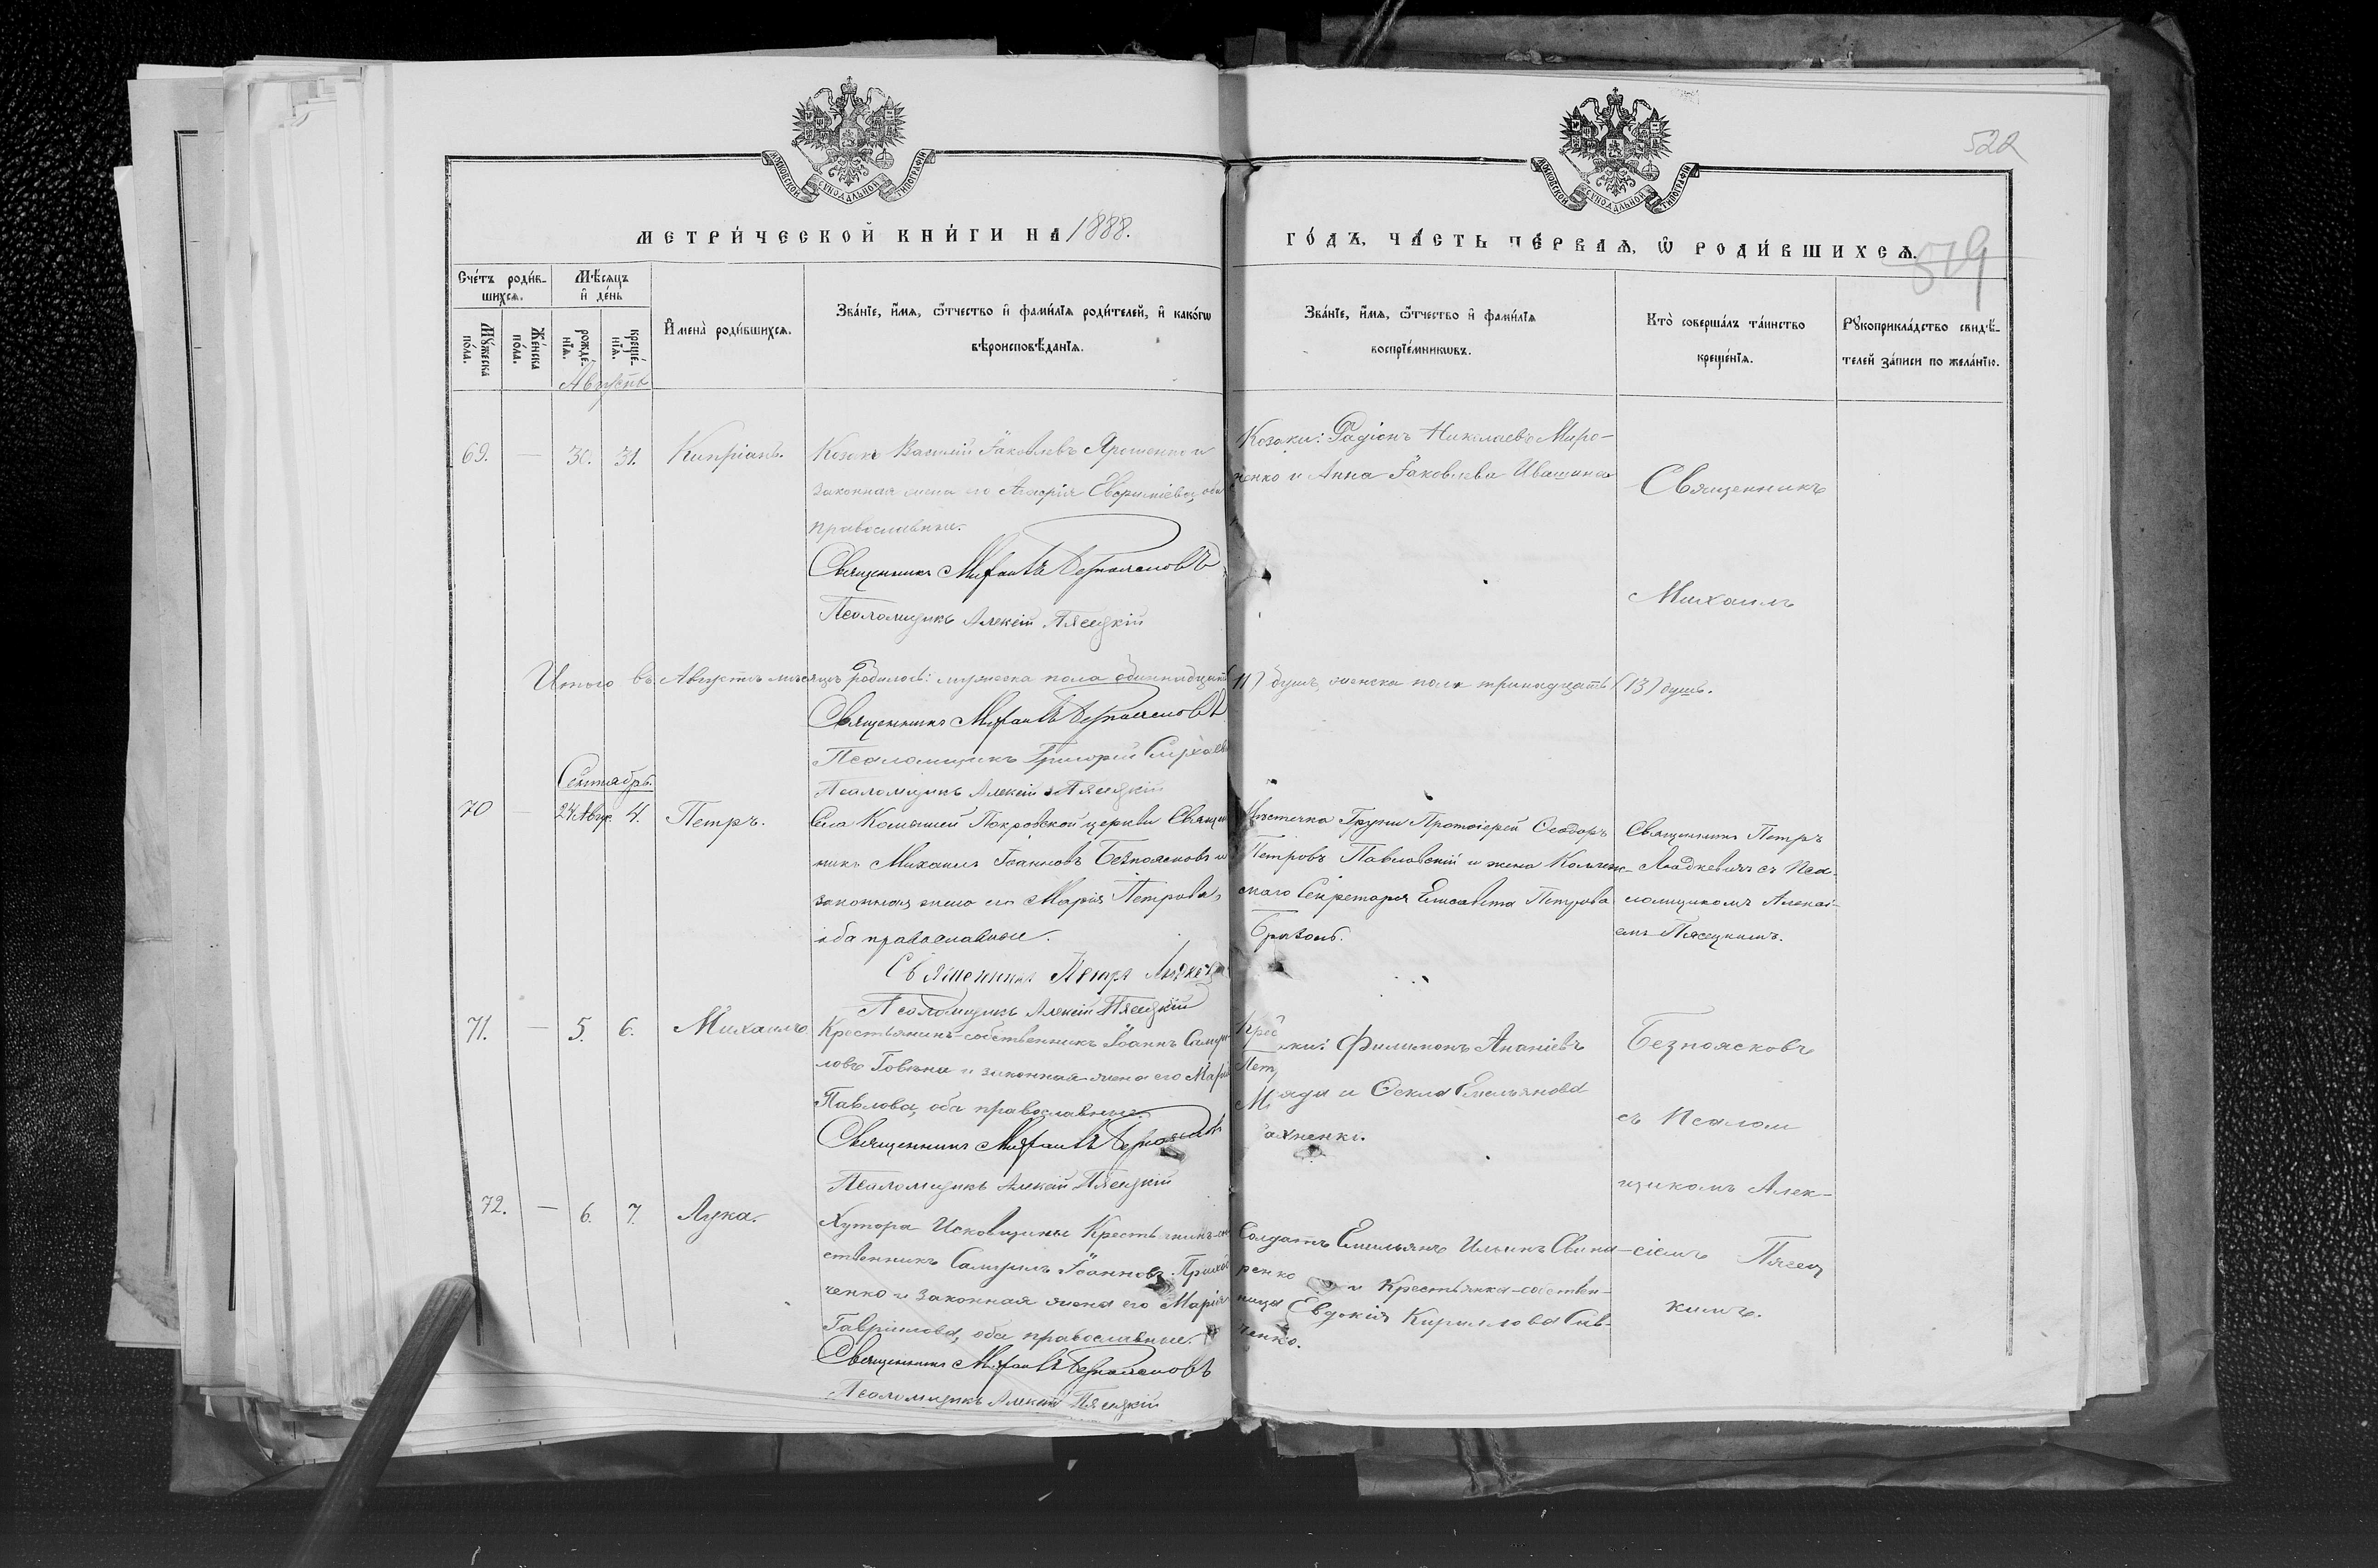 522
519
МЕТРИЧЕСКОЙ КНИГИ НА 1888.
ГОДЪ, ЧАСТЬ ПЕРВАЯ, Ѡ РОДИВШИХСЯ.
МОСКОВСКОЙ СѴНОДАЛЬНОЙ ТИПОГРАФІИ
МОСКОВСКОЙ СѴНОДАЛЬНОЙ ТИПОГРАФІИ
Счетъ родив-
шихся.
Мѣсяцъ
и день
Мужеска пола.
Женска пола.
рожде-
нія.
креще-
нія.
Имена родившихся.
Званіе, имя, ѿтчество и фамилія родителей, и какогѡ
вѣроисповѣданія.
Званіе, имя, ѿтчество и фамилія
воспріемникѡвъ.
Кто совершалъ таинство
крещенія.
Рукоприкладство свидѣ-
телей записи по желанію.
Августъ
69. — 30. 31. Кипріанъ.
Козакъ Василій Іаковлевъ Ярошенко и
законная жена его Агафія, оба
православные.
Священникъ Михаилъ Безпоясковъ
Псаломщикъ Алексій Пясецкій
Козаки: Радіонъ Николаевъ Миро-
ненко и Анна Іаковлева
Священникъ
Михаилъ
Итого въ Августѣ мѣсяцѣ родилось: мужеска пола одиннадцать 11) душъ, женска пола тринадцать (13) душъ.
Священникъ Михаилъ Безпоясковъ
Псаломщикъ Григорій
Псаломщикъ Алексій Пясецкій
Сентябрь.
70 — 24 Авг. 4. Петръ.
Села Комышей Покровской церкви Священ
никъ Михаилъ Іоанновъ Безпоясковъ и
законная жена его Марія Петрова,
оба православные.
Священникъ Петръ
Псаломщикъ Алексій Пясецкій
Мѣстечка Груни Протоіерей Ѳеодоръ
Петровъ Павловскій и жена Коллеж-
скаго Секретаря Елисавета Петрова
Священникъ Петръ
съ Пса-
ломщикомъ Алексі-
емъ Пясецкимъ.
71. — 5. 6. Михаилъ
Крестьянинъ-собственникъ Іоаннъ Самуи
ловъ Говына и законная жена его Марія
Павлова, оба православные.
Священникъ Михаилъ Безпоясковъ
Псаломщикъ Алексій Пясецкій
Филимонъ Ананіевъ
и Ѳекла Емельянова
Безпоясковъ
съ Псалом
щикомъ Алек-
72. — 6. 7. Лука.
Хутора Исковщины Крестьянинъ-соб
ственникъ Самуилъ Іоанновъ Прихо
ченко и законная жена его Марія
Гавріилова, оба православные.
Священникъ Михаилъ Безпоясковъ
Псаломщикъ Алексій Пясецкій
Солдатъ Емельянъ Ильинъ Свина-
ренко и Крестьянка-собствен-
ница Евдокія Кириллова Сав-
ченко.
сіемъ Пясец
кимъ.